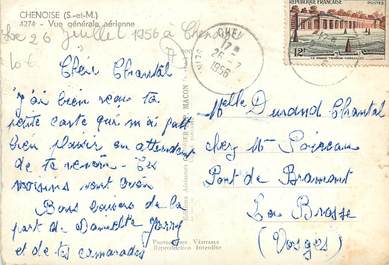 CHENOISE (S.-et-M.)
4274 - Vue générale aérienne
Le 26 Juillet 1956 à Chenoise
Chère Chantal
J'ai bien reçu ta
jolie carte qui m'a fait
bien plaisir en attendant
de te revoir. Tes
voisins vont bien
Bons baisers de la
part de Danielle
et de tes camarades
17 H
26-7
1956
REPUBLIQUE FRANÇAISE
POSTES
12F
LE GRAND TRIANON VERSAILLES
Melle Durand Chantal
chez Mr
Pont de Bramont
La Bresse
(Vosges)
MACON
Reproduction Interdite